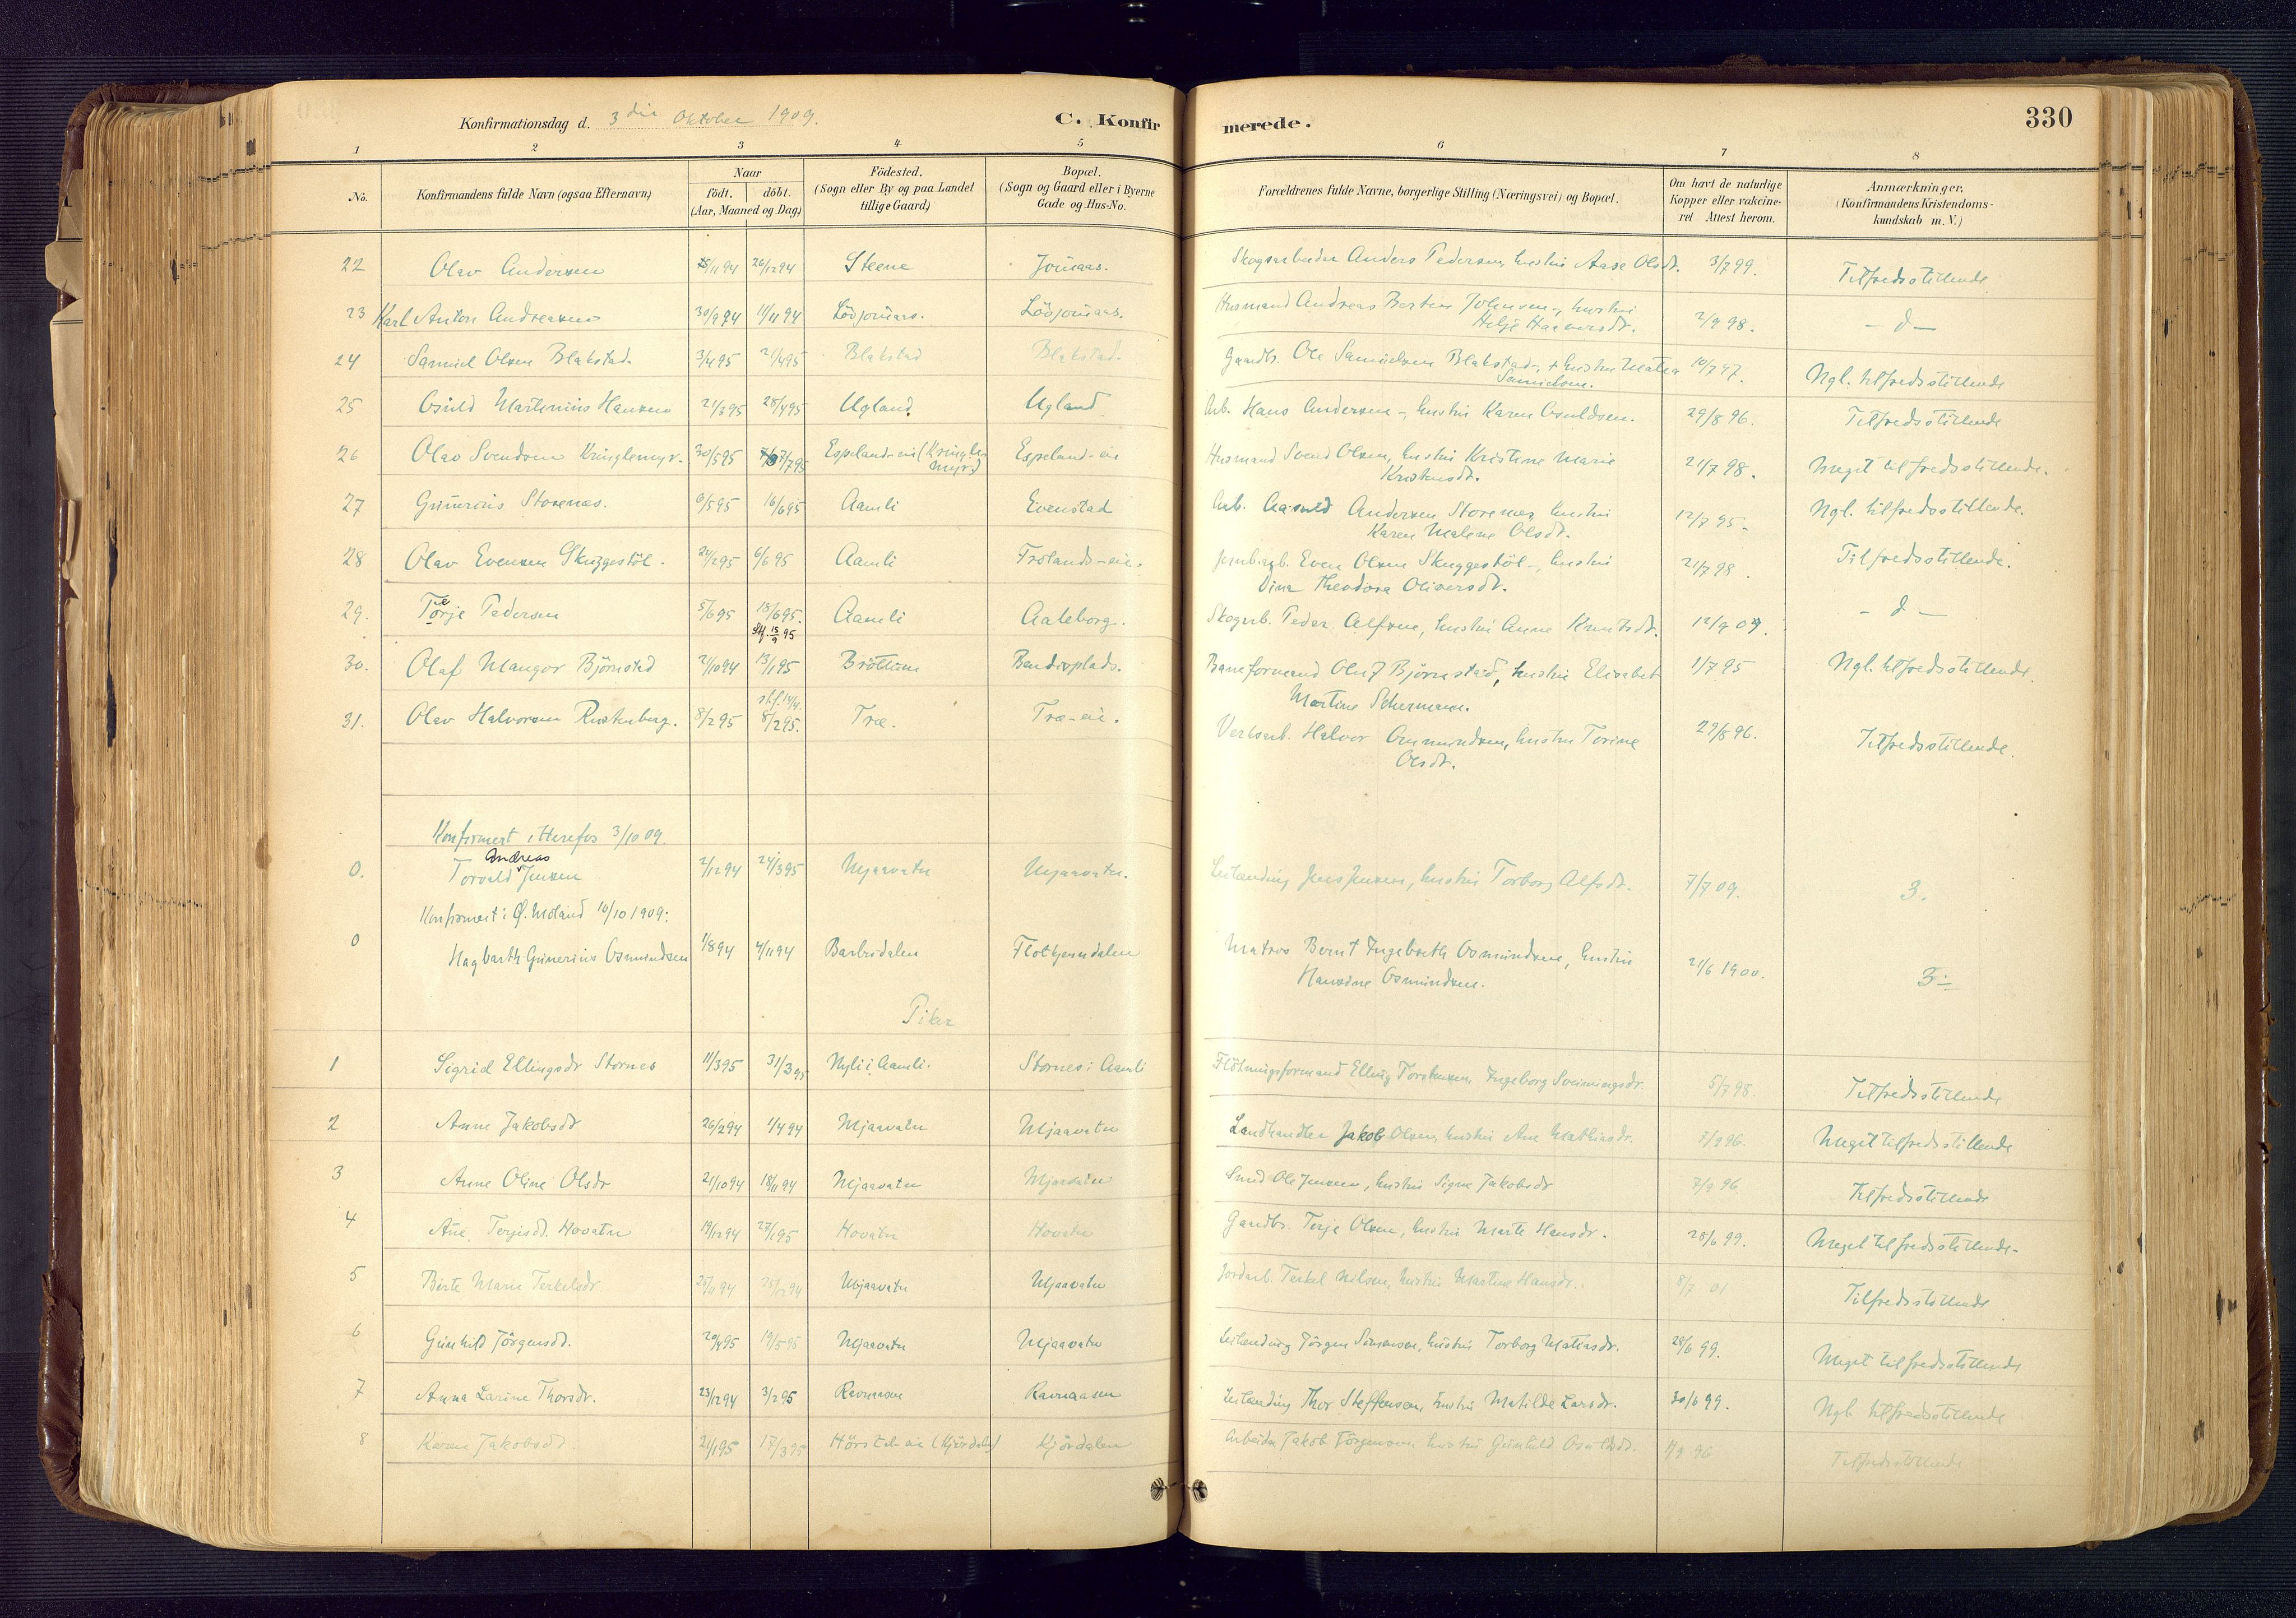 Konfirmationsdag d. 3die Oktober 1909.
C. Konfirmerede.
330
1 2 3 4 5 6 7 8
No.
Konfirmandens fulde Navn (ogsaa Efternavn)
Naar
født. døbt.
(Aar, Maaned og Dag)
Födested.
(Sogn eller By og paa Landet
tillige Gaard)
Bopæl.
(Sogn og Gaard eller i Byerne
Gade og Hus-No.
Forældrenes fulde Navne, borgerlige Stilling (Næringsvei) og Bopæl.
Om havt de naturlige
Kopper eller vakcine-
ret Attest herom.
Anmærkninger,
(Konfirmandens Kristendoms-
kundskab m. V.)
22 Olav Andersen 15/11 94 26/12 94 Steene Joumaas. Skogsarbeider Anders Pedersen, hustru Aase Olsdt. 3/7 99. Tilfredsstillende
23 Karl Anton Andreasen 30/9 94 11/11 94 Lövjoumaas. Lövjoumaas. Husmand Andreas Bertin Johnsen, hustru
Helje Haaversdt. 2/9 98. - d -
24 Samuel Olsen Blakstad. 3/4 95 21/4 95 Blakstad Blakstad. Gaardbr. Ole Samuelsen Blakstad, + hustru Matea
Samuelsen. 10/7 97. Ngl. tilfredsstillende
25 Osuld Martinius Hansen 21/3 95 28/4 95 Ugland. Ugland. Arb. Hans Andersen, hustru Karen Osuldsen. 29/8 96. Tilfredsstillende
26 Olav Svendsen Kringlemyr. 30/5 95 7/7 95 Espeland-eie (Kringle
myr) Espeland-eie Husmand Svend Olsen, hustru Kristine Marie
Kristensdt. 21/7 98. Meget tilfredsstillende.
27 Gunnerius Storenes. 9/5 95 16/6 95 Aamli Evenstad Arb. Aasuld Andersen Storenes, hustru
Karen Malene Olsdt. 12/7 95. Ngl. tilfredsstillende.
28 Olav Evensen Skuggestöl. 24/2 95 6/6 95 Aamli Frolands-eie. Jernb.arb. Even Olsen Skuggestöl, hustru
Dina Theodora Oliversdt. 21/7 98. Tilfredsstillende.
29. Torje Pedersen 5/6 95 18/6 95. Aamli Aaleborg. Skogarb. Peder Alfsen, hustru Anne Knutsdt. 12/9 09. - d -
Stf. 15/9 95
30. Olaf Mangor Björnstad 21/10 94 13/1 95 Bröttum Bendixplads. Baneformand Oluf Björnstad, hustru Elisabet
Martine Schermann. 1/7 95 Ngl. tilfredsstillende.
stf. 14/4.
31. Olav Halvorsen Rustenberg. 8/2 95 8/2 95. Træ. Træ-eie. Verksarb. Halvor Omundsen, hustru Torine
Olsdt. 29/8 96. Tilfredsstillende.
Konfirmert i Herefos 3/10 09.
Andreas
0. Torvald Jensen 2/12 94 24/3 95 Mjaavatn Mjaavatn. Leilænding Jens Jensen, hustru Torborg Alfsdt. 7/7 09. 3.
Konfirmert i Ø. Moland 10/10 1909:
0 Hagbarth Gunerius Osmundsen 1/8 94 4/11 94 Barbrudalen Flotkjerndalen Matros Bernt Ingebreth Osmundsen, hustru
Hansine Osmundsen. 21/6 1900. 3÷
Piker
1 Sigrid Ellingsdr Stornes 11/3 95 31/3 95 Nyli i Aamli. Stornes i Aamli Flötningsformand Elling Torstensen, Ingeborg Svenningsdr. 5/7 98. Tilfredsstillende
2 Anne Jakobsdt 26/2 94 1/4 94 Mjaavatn Mjaavatn Landhandler Jakob Olsen, hustru Ane Mathiasdr. 7/9 96. Meget tilfredsstillende
3 Anne Oline Olsdr 21/10 94 18/11 94 Mjaavatn Mjaavatn Smed Ole Jensen, hustru Signe Jakobsdt 7/9 96 Tilfredsstillende
4 Ane Terjesdt. Hovatn 19/12 94 27/1 95 Hovatn Hovatn Gaardbr. Terje Olsen, hustru Marte Hansdr. 28/6 99. Meget tilfredsstillende.
5 Birte Marie Terkelsdr 25/11 94 25/12 94 Mjaavatn Mjaavatn Jordarb. Terkel Nilsen, hustru Martine Hansdr. 8/7 01 Tilfredsstillende
6 Gunhild Jörgensdt. 20/4 95 19/5 95 Mjaavatn Mjaavatn Leilænding Jörgen Simonsen, hustru Torborg Matiasdr. 28/6 99. Meget tilfredsstillende
7 Anna Larine Thorsdr. 23/12 94 3/2 95 Ravnaasen Ravnaasen Leilænding Thor Steffensen, hustru Matilde Larsdr. 30/6 99. Ngl. tilfredsstillende
8 Karen Jakobsdt. 21/1 95 17/3 95 Hörstel-eie (Kjördalen) Kjördalen Arbeider Jakob Jörgensen, hustru Gunhild Osuldsdt. 7/9 96 Tilfredsstillende